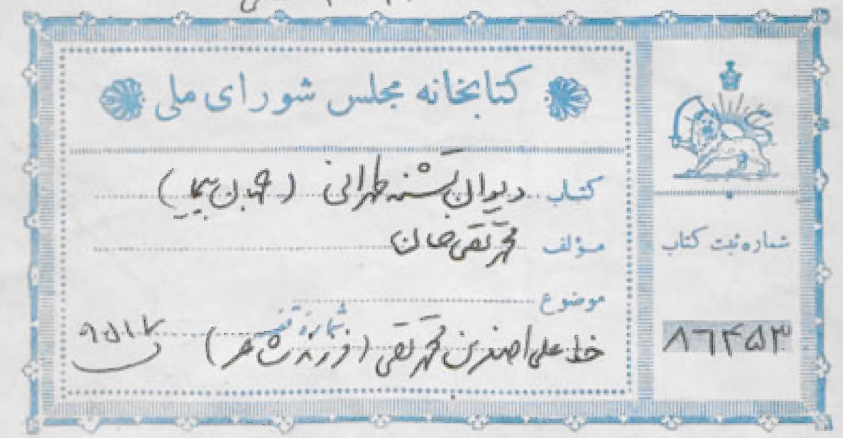 کتابخانه مجلس شورای ملی
کتاب دیوان تشنه طهرانی (جهان پیما)
مؤلف محمد تقی خان
موضوع
شماره قفسه ۹۵۱۷
خط علی اصغر بن محمد تقی (فرزند شاعر)
شماره ثبت کتاب
۸۶۴۵۳